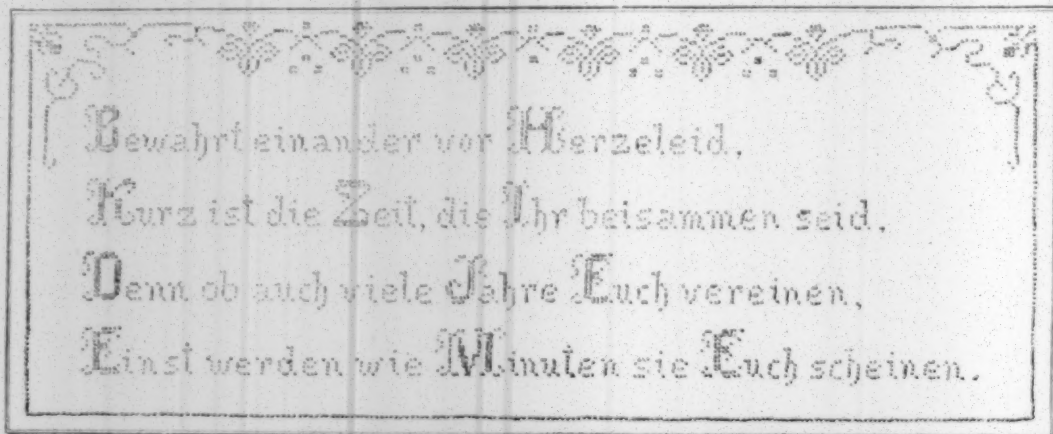 Bewahrt einander vor Herzeleid.
Kurz ist die Zeit, die Ihr beisammen seid.
Denn ob auch viele Jahre Euch vereinen,
Einst werden wie Minuten sie Euch scheinen.